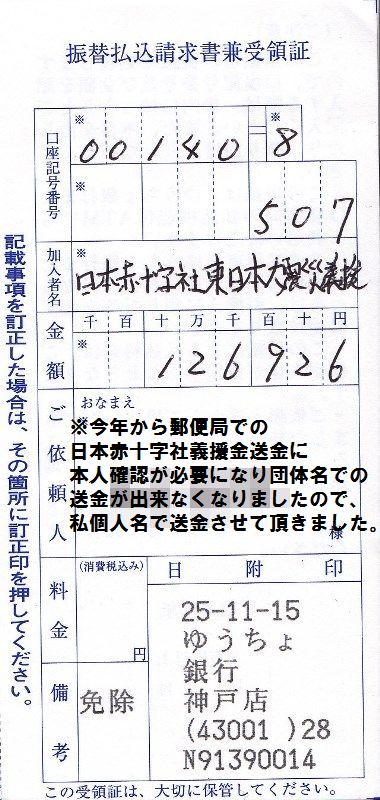 振替払込請求書兼受領証
口座記号番号
※
00140
※
8
※
507
加入者名
※
日本赤十字社東日本大震災義援
金額
千 百 十 万 千 百 十 円
※
126926
ご依頼人
おなまえ
※今年から郵便局での
日本赤十字社義援金送金に
本人確認が必要になり団体名での
送金が出来なくなりましたので、
私個人名で送金させて頂きました。
様
料金
(消費税込み)
円
備考
免除
日 附 印
25-11-15
ゆうちょ
銀行
神戸店
(43001 )28
N91390014
記載事項を訂正した場合は、その箇所に訂正印を押してください。
この受領証は、大切に保管してください。